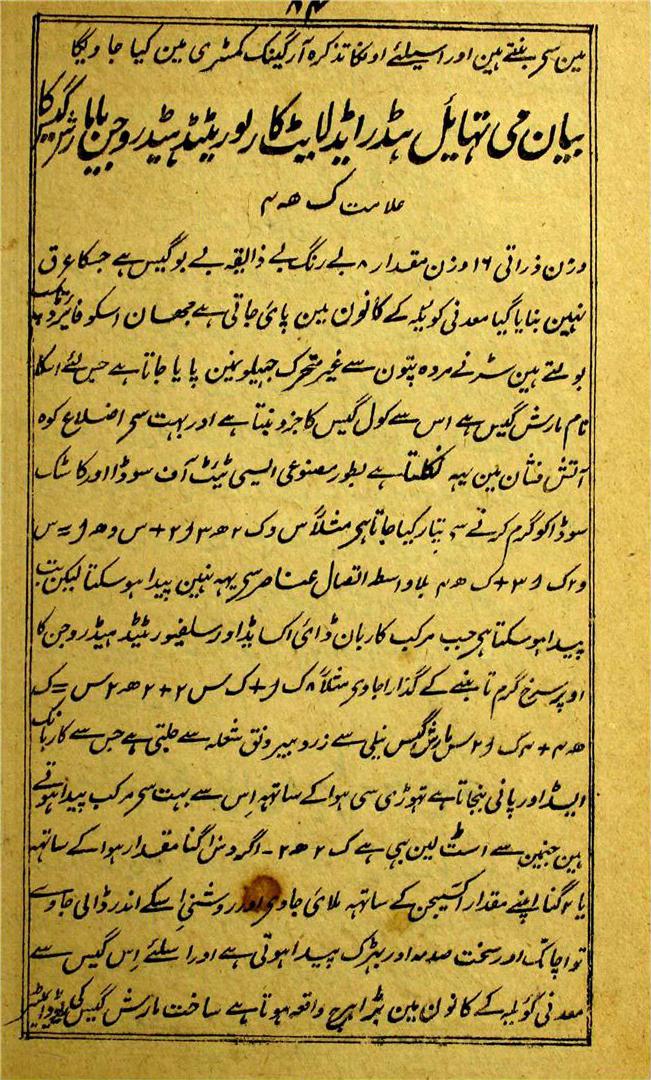 ۸۴
مین سے بنتے ہین اور اسیلئے اونکا تذکرہ آرگینک کمسٹری مین کیا جاویگا
بیان می تہایل ہڈرایڈ لایٹ کاربوریٹیڈ ہیڈروجن یا مارش گیس کا
علامت ک ھ ۴
وزن ذراتی ۱۶ وزن مقدار ۸ بے رنگ بے ذایقہ بے بو گیس ہے جسکا عرق
نہین بنایا گیا معدنی کویلہ کے کانون مین پائی جاتی ہے جہان اسکو فائرڈمپ
بولتے ہین سڑنے مردہ پتون سے غیر متحرک جہیلو نمین پایا جاتا ہے جس لئے اسکا
نام مارش گیس ہے اس سے کول گیس کا جزو بنتا ہے اور بہت سے اضلاع کوہ
آتش فشان مین یہہ نکلتا ہے بطور مصنوعی ایسی ٹیٹ آف سوڈا اور کاسٹک
سوڈا کو گرم کرنے سے تیار کیا جاتا ہے مثلاً س و ک ۲ ھ ۳ ا ۲ + س و ھ ا = س
و ۲ ک ا ۳ + ک ھ ۴ بلا واسطہ اتصال عناصر سے یہہ نہین پیدا ہو سکتا لیکن تب
پیدا ہو سکتا ہے جب مرکب کاربان ڈائی اکسایڈ اور سلفیورٹیڈ ہیڈروجن کا
اوپر سرخ گرم تانبے کے گذارا جاوی مثلاً ۸ ک ا + ک س ۲ + ۲ ھ ۲ س = ک
ھ ۴ + ۴ ک ا ۲ س مارش گیس نیلی سے زرد بیرونق شعلہ سے جلتی ہے جس سے کاربانک
ایسڈ اور پانی بنجاتا ہے تہوڑی سی ہوا کے ساتہہ اِس سے بہت سے مرکب پیدا ہوتے
ہین جنمین سے اسٹ لین بہی ہے ک ۲ ھ ۲ - اگر دس گنا مقدار ہوا کے ساتہہ
یا ۲ گنا اپنے مقدار اکسیجن کے ساتہہ ملائی جاوی اور روشنی اسکے اندر ڈالی جاوے
تو اچانک اور سخت صدمہ اور بہڑک پیدا ہوتی ہے اور اسلئے اِس گیس سے
معدنی کویلہ کے کانون مین بڑا ہرج واقعہ ہوتا ہے ساخت مارش گیس کی